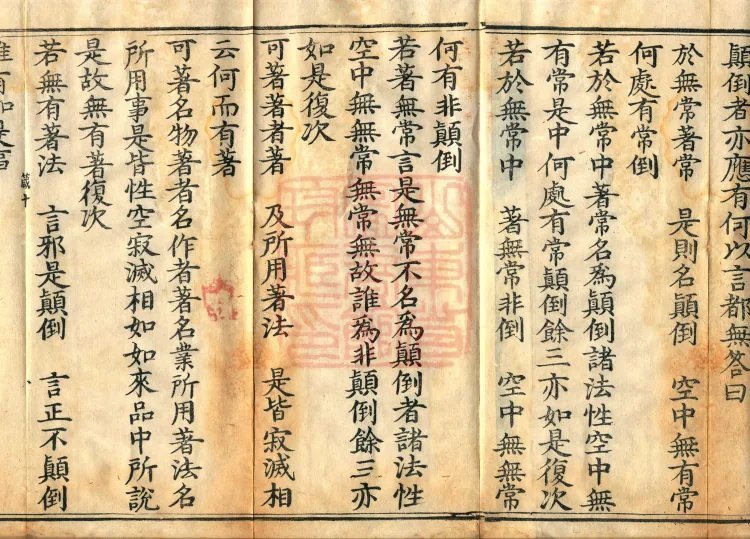 顛倒者亦應有何以言都無答曰
於無常著常 是則名顛倒 空中無有常
何處有常倒
若於無常中著常名為顛倒諸法性空中無
有常是中何處有常顛倒餘三亦如是復次
若於無常中 著無常非倒 空中無無常
何有非顛倒
若著無常言是無常不名為顛倒者諸法性
空中無無常無常無故誰為非顛倒餘三亦
如是復次
可著著者著 及所用著法 是皆寂滅相
云何而有著
可著名物著者名作者著名業所用著法名
所用事是皆性空寂滅相如如來品中所說
是故無有著復次
若無有著法 言邪是顛倒 言正不顛倒
藏十